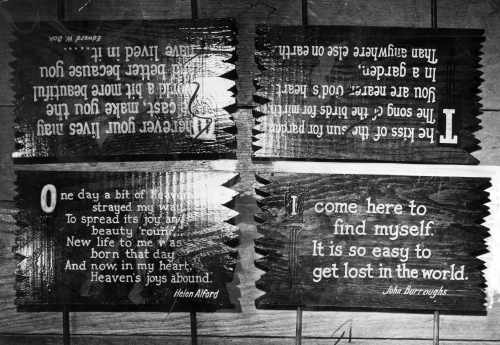 Wherever your lives may
cast, make you the
world a bit more beautiful
and better because you
have lived in it......
Edward W. Bok
The kiss of the sun for pardon
The song of the birds for mirth
You are nearer God's heart
In a garden,
Than anywhere else on earth.
One day a bit of Heaven
strayed my way
To spread its joy and
beauty 'round...
New life to me was
born that day
And now, in my heart,
Heaven's joys abound.
Helen Alford
I come here to
find myself.
It is so easy to
get lost in the world.
John Burroughs